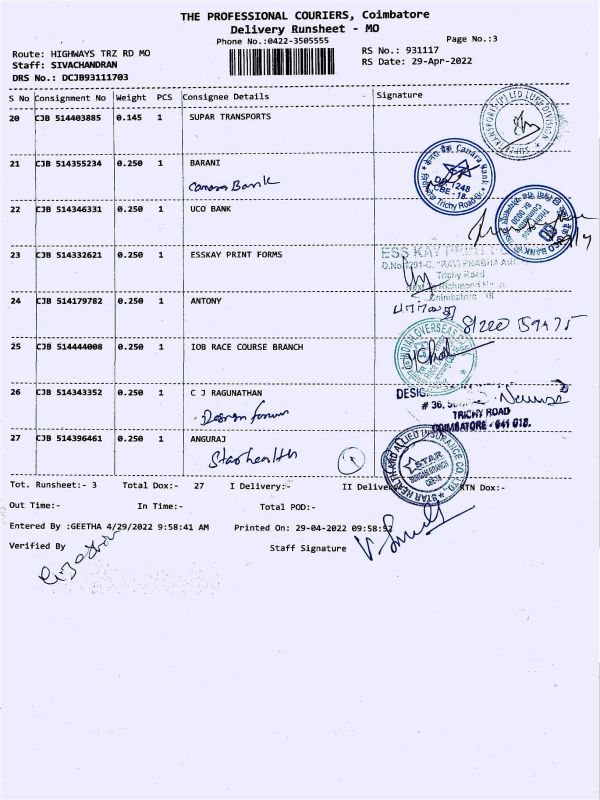 THE PROFESSIONAL COURIERS, Coimbatore
Delivery Runsheet - MO
Phone No.:0422-3505555
Page No.:3
Route: HIGHWAYS TRZ RD MO
RS No.: 931117
Staff: SIVACHANDRAN
RS Date: 29-Apr-2022
DRS No.: DCJB93111703
S No Consignment No Weight PCS Consignee Details Signature
20 CJB 514403885 0.145 1 SUPAR TRANSPORTS
21 CJB 514355234 0.250 1 BARANI
Canara Bank
केनरा बैंक Canara Bank
DP 1248
CBE - 18.
Trichy Road
22 CJB 514346331 0.250 1 UCO BANK
UCO BANK
23 CJB 514332621 0.250 1 ESSKAY PRINT FORMS
ESS KAY PRINT
Trichy Road
Coimbatore 18
24 CJB 514179782 0.250 1 ANTONY
25 CJB 514444008 0.250 1 IOB RACE COURSE BRANCH
INDIAN OVERSEAS
26 CJB 514343352 0.250 1 C J RAGUNATHAN
Design forum
DESIG
# 36,
TRICHY ROAD
COIMBATORE - 641 018.
27 CJB 514396461 0.250 1 ANGURAJ
Star health
STAR HEALTH AND ALLIED INSURANCE CO. LTD
STAR
Tot. Runsheet:- 3 Total Dox:- 27 I Delivery:- II Delivery RTN Dox:-
Out Time:- In Time:- Total POD:-
Entered By :GEETHA 4/29/2022 9:58:41 AM Printed On: 29-04-2022 09:58:52
Verified By
Staff Signature